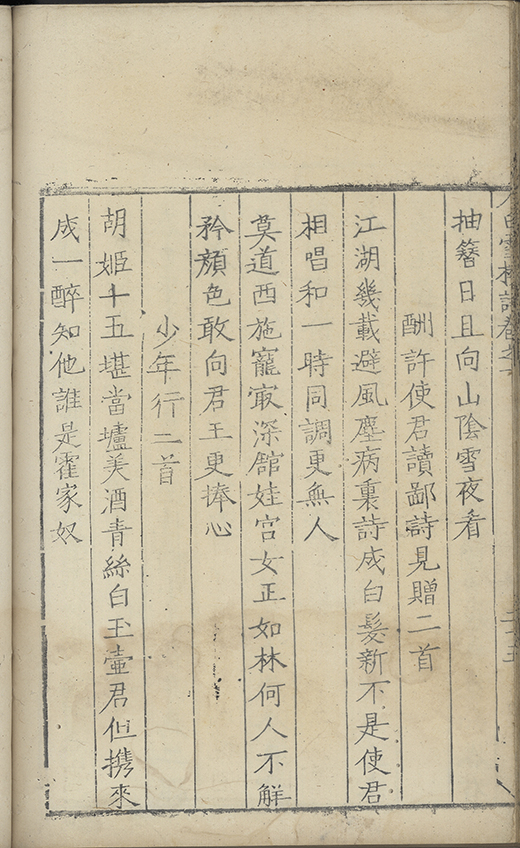 白雪樓詩卷之下
抽簪日且向山陰雪夜看
酬許使君讀鄙詩見贈二首
江湖幾載避風塵病裏詩成白髮新不是使君
相唱和一時同調更無人
莫道西施寵㝡深舘娃宮女正如林何人不觧
矜顏色敢向君王更捧心
少年行二首
胡姬十五堪當壚美酒青絲白玉壷君但携來
成一醉知他誰是霍家奴